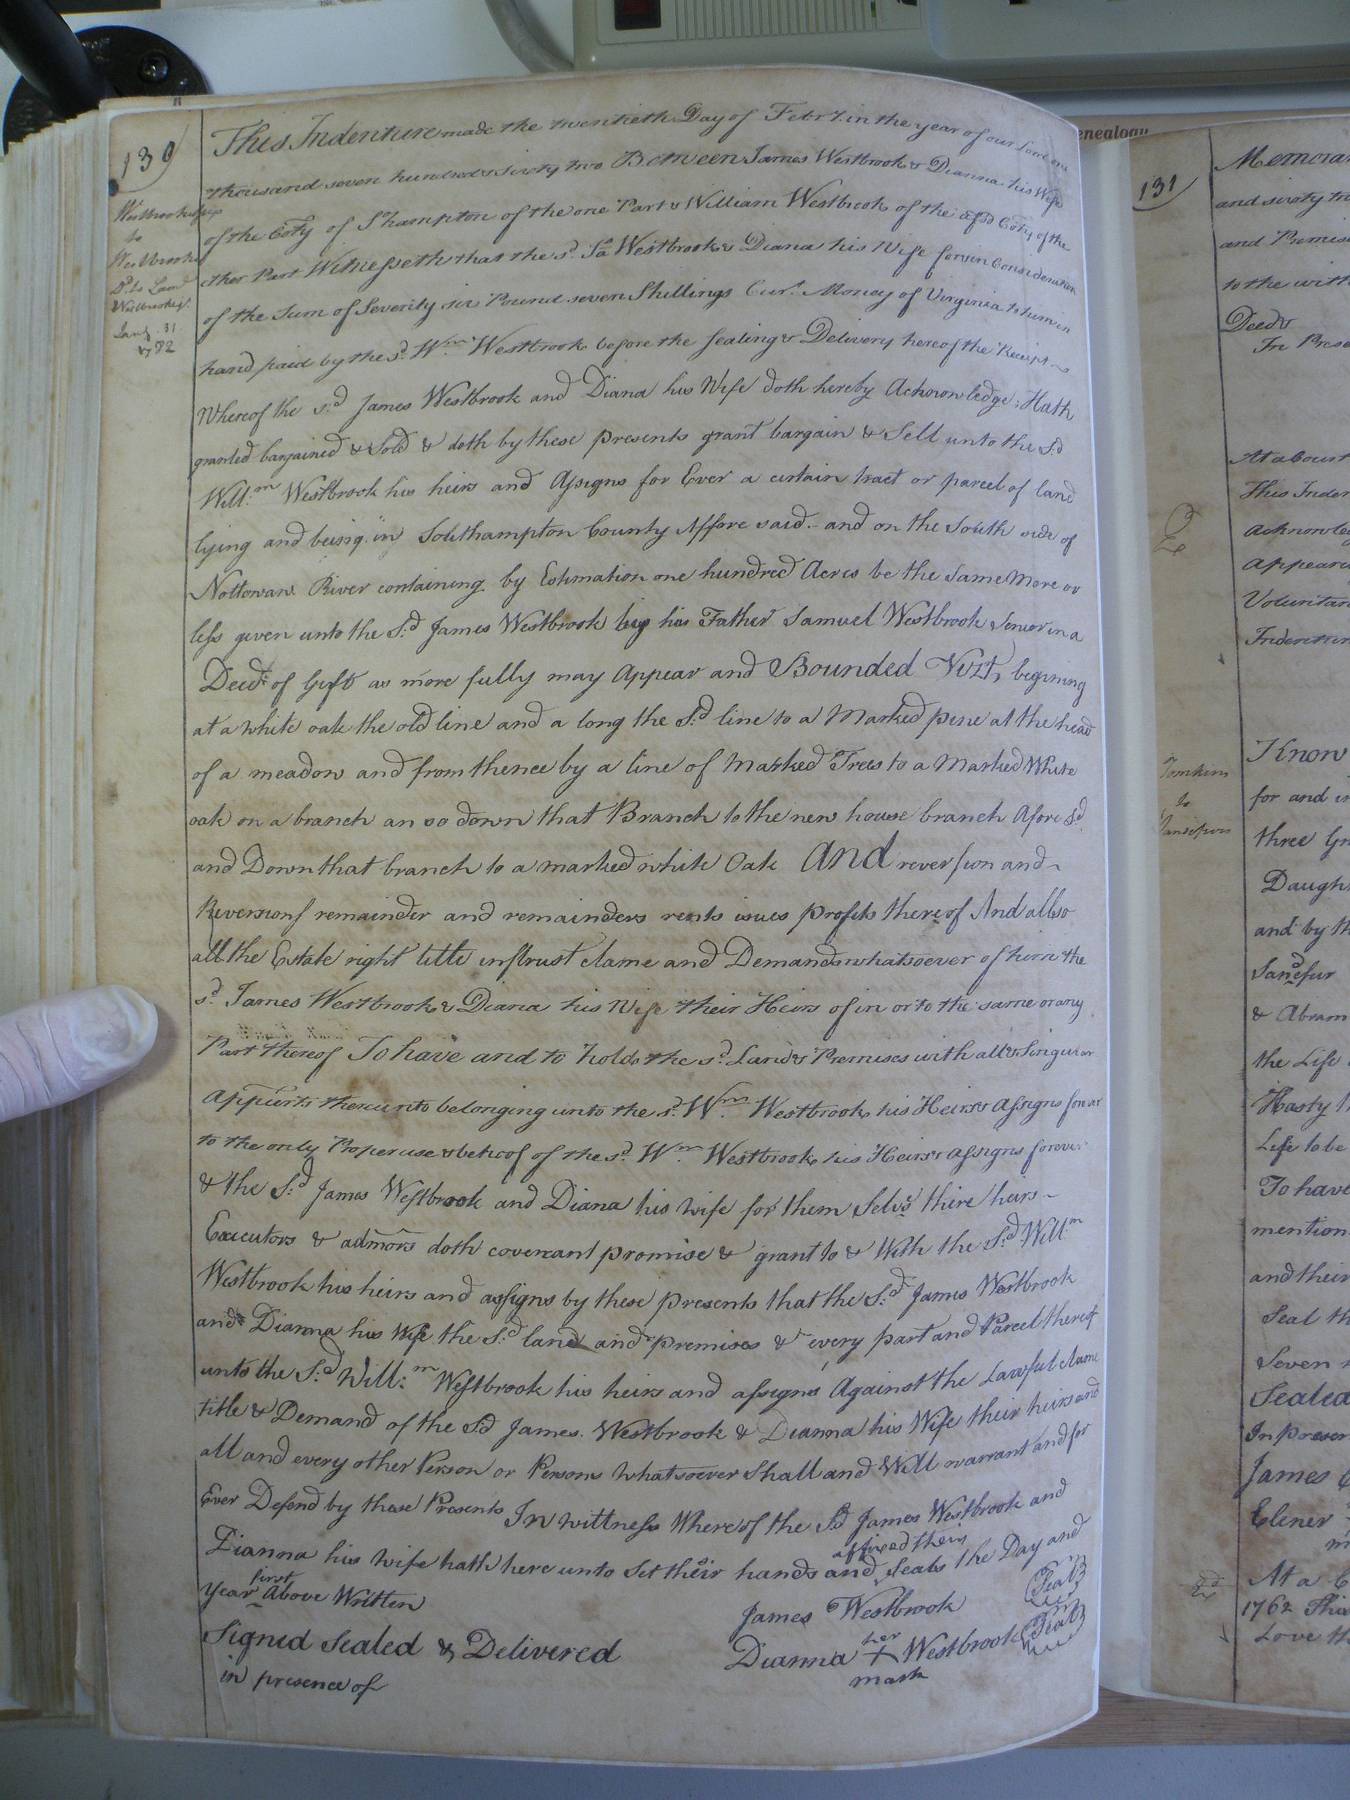 enealogy
130
Westbrook
to
Westbrook
Ds. to Land
Jany. 31
1782
This Indenture made the twentieth Day of Febry. in the year of our Lord one
thousand seven hundred & sixty two Between James Westbrook & Dianna his Wife
of the Coty of S:hampton of the one Part & William Westbrook of the afsd Coty of the
other Part Witnesseth that the sd. Ja Westbrook & Diana his Wife for & in Consideration
of the Sum of Seventy six Pound seven Shillings Curt. Money of Virginia to him in
hand paid by the sd. Wm. Westbrook before the sealing & Delivery hereof the Receipt
Whereof the s:d James Westbrook and Diana his Wife doth hereby Acknowledge; Hath
granted bargained & Sold & doth by these presents grant bargain & Sell unto the S:d
Will:m Westbrook his heirs and Assigns for Ever a certain tract or parcel of land
lying and being in Southampton County Affore said - and on the South side of
Nottoway River containing by Estimation one hundred Acres be the Same More or
less given unto the S:d James Westbrook by his Father Samuel Westbrook Senior in a
Deed of Gift as more fully may Appear and Bounded Vizt, begining
at a white oak the old line and a long the S:d line to a Marked pine at the head
of a meadow and from thence by a line of Marked Trees to a Marked White
oak on a branch an so down that Branch to the new house branch Afore S:d
and Down that branch to a marked white Oak And reversion and
Reversions remainder and remainders rents isues profits thereof And allso
all the Estate right title intrust clame and Demands whatsoever of him the
sd. James Westbrook & Diana his Wife their Heirs of in or to the same or any
Part thereof To have and to hold the sd. Land & Premises with all & Singular
Appurts thereunto belonging unto the sd. Wm. Westbrook his Heirs & Assigns forever
to the only Proper use & behoof of the sd. Wm. Westbrook his Heirs & Assigns forever
& the S:d James Westbrook and Diana his wife for them Selvs there heirs
Executors & admors doth covenant promise & grant to & With the S:d Willm
Westbrook his heirs and assigns by these presents that the S:d James Westbrook
and Dianna his Wife the S:d land and premises & every part and Parcel thereof
unto the S:d Will:m Westbrook his heirs and assigns Against the Lawful clame
title & Demand of the Sd James Westbrook & Dianna his Wife their heirs and
all and every other Person or Persons Whatsoever Shall and Will warrant and for
Ever Defend by these Presents In wittness Whereof the Sd James Westbrook and
Dianna his wife hath here unto Set their hands and affixed their Seals the Day and
year first Above Written
James Westbrook Seal
Dianna her + mark Westbrook Seal
Signed Sealed & Delivered
in presence of
131
Memoran
and sixty tw
and Premis
to the with
Deed &
In Prese
At a Court
This Inden
acknowledg
appeared
Voluntar
Indenture
Tomkins
to
Know
for and in
three
Daugh
and by th
& Abram
the Life
Hasty
Life to be
To have
mention
and their
Seal th
Seven
Sealed
In presen
James
Elener
At a C
1762 This
Love th